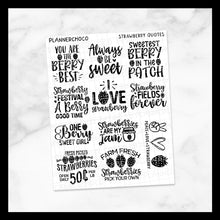 PLANNERCHOCO
STRAWBERRY QUOTES
YOU ARE
THE
BERRY
BEST
Always
be
sweet
SWEETEST
BERRY
IN THE
PATCH
Strawberry
FESTIVAL
A Berry
GOOD TIME
I
LOVE
strawberry
Strawberry
FIELDS
forever
ONE
Berry
SWEET GIRL
STRAWBERRIES
ARE MY
jam
FARM FRESH
Strawberries
PICK YOUR OWN
FRESH PICKED
STRAWBERRIES
OPEN
DAILY
50¢
PER
LB